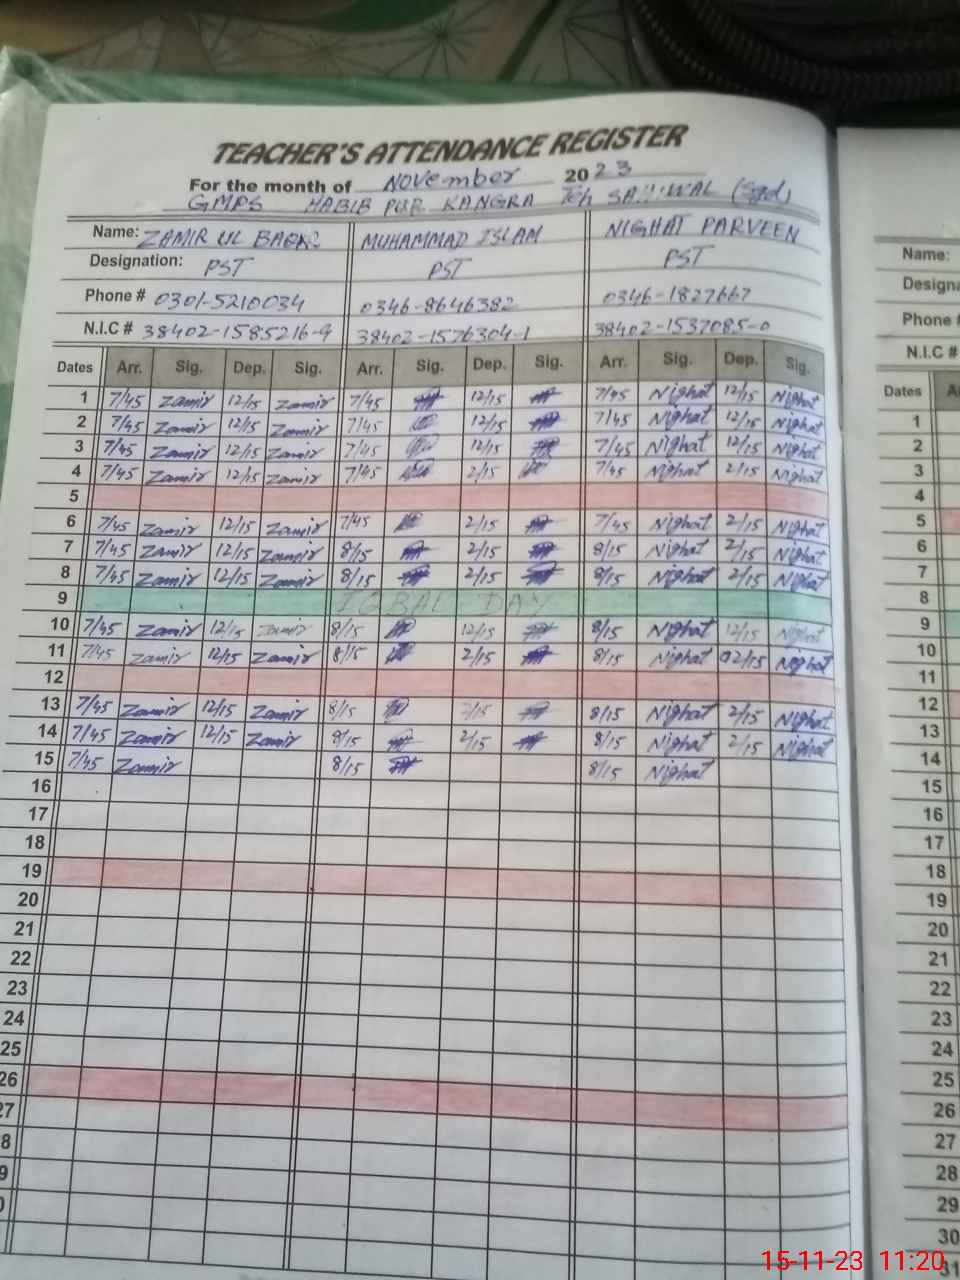 TEACHER'S ATTENDANCE REGISTER
For the month of November 2023
GMPS HABIB PUR KANGRA Teh SAHIWAL (Sgd)
Name: ZAMIR UL MUHAMMAD ISLAM NIGHAT PARVEEN Name:
Designation: PST PST PST
Phone # 0301-5210034 0346-8646382 0346-1827667 Phone
N.I.C # 38402-1585216-9 38402-1576304-1 38402-1537085-0 N.I.C #
Dates Arr. Sig. Dep. Sig. Arr. Sig. Dep. Sig. Arr. Sig. Dep. Sig. Dates
1 7/45 Zamir 12/15 Zamir 7/45 12/15 7/45 Nighat 12/15 Nighat 1
2 7/45 Zamir 12/15 Zamir 7/45 12/15 7/45 Nighat 12/15 Nighat 2
3 7/45 Zamir 12/15 Zamir 7/45 12/15 7/45 Nighat 12/15 Nighat 3
4 7/45 Zamir 12/15 Zamir 7/45 2/15 7/45 Nighat 2/15 Nighat 4
5 5
6 7/45 Zamir 12/15 Zamir 7/45 2/15 7/45 Nighat 2/15 Nighat 6
7 7/45 Zamir 12/15 Zamir 8/15 2/15 8/15 Nighat 2/15 Nighat 7
8 7/45 Zamir 12/15 Zamir 8/15 2/15 8/15 Nighat 2/15 Nighat 8
9 IQBAL DAY 9
10 7/45 Zamir 12/15 Zamir 8/15 12/15 8/15 Nighat 12/15 Nighat 10
11 7/45 Zamir 12/15 Zamir 8/15 2/15 8/15 Nighat 12/15 Nighat 11
12 12
13 7/45 Zamir 12/15 Zamir 8/15 2/15 8/15 Nighat 2/15 Nighat 13
14 7/45 Zamir 12/15 Zamir 8/15 2/15 8/15 Nighat 2/15 Nighat 14
15 7/45 Zamir 8/15 8/15 Nighat 15
16 16
17 17
18 18
19 19
20 20
21 21
22 22
23 23
24 24
25 25
26 26
27 27
8 28
9 29
30
31
15-11-23 11:20